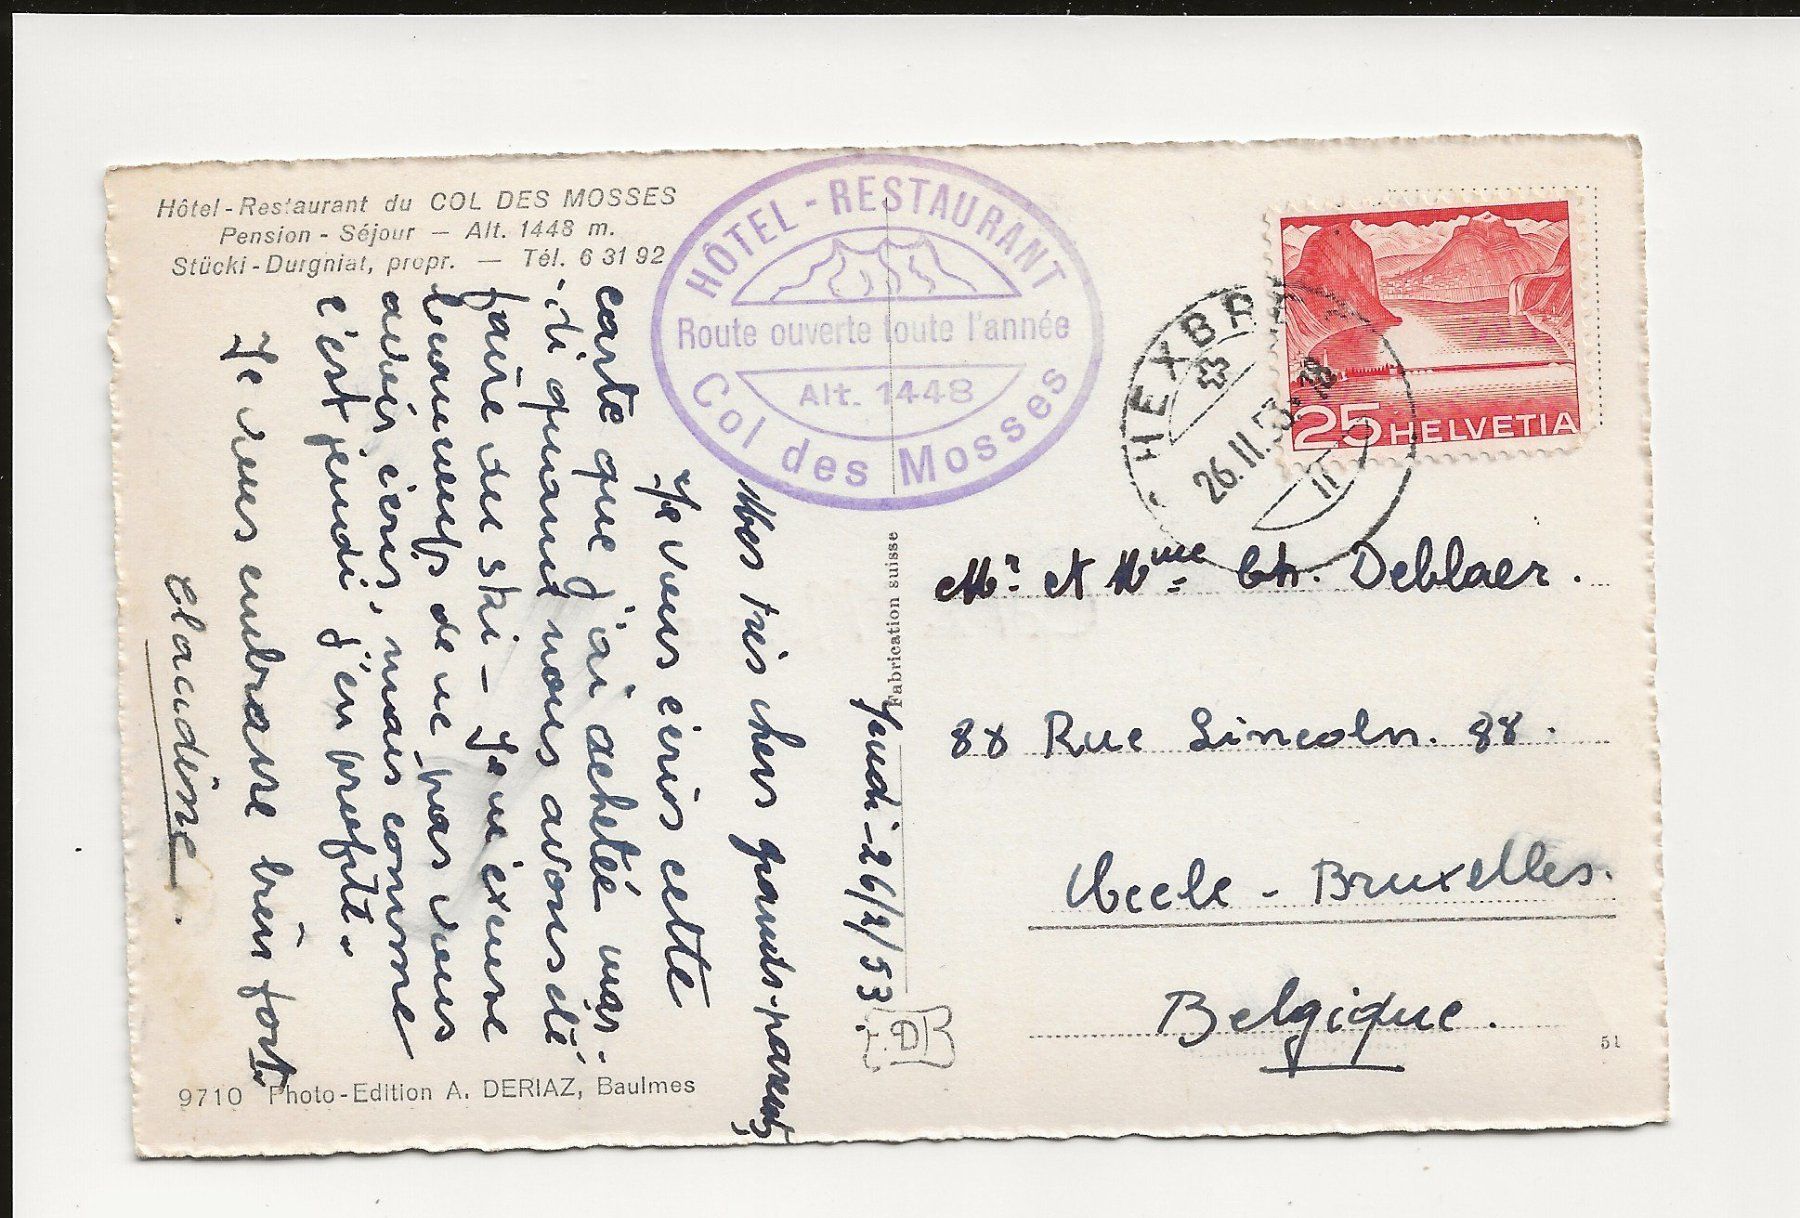 Hôtel-Restaurant du COL DES MOSSES
Pension - Séjour — Alt. 1448 m.
Stücki-Durgniat, propr. — Tél. 6 31 92
HÔTEL - RESTAURANT
Route ouverte toute l'année
Alt. 1448
Col des Mosses
HEXBR
26.II.53
II
25 HELVETIA
Jeudi - 26/2/53.
Mes très chers grands-parents,
Je vous écris cette
carte que j'ai acheté mar-
di quand nous avons été
faire du ski - Je m'excuse
beaucoup de ne pas vous
avoir écris, mais comme
c'est jeudi j'en profite.
Je vous embrasse bien fort.
Claudine.
Fabrication suisse
Mr et Mme Ch. Deblaer.
88 Rue Lincoln. 88.
Uccle - Bruxelles.
Belgique.
51
D
9710 Photo-Edition A. DERIAZ, Baulmes